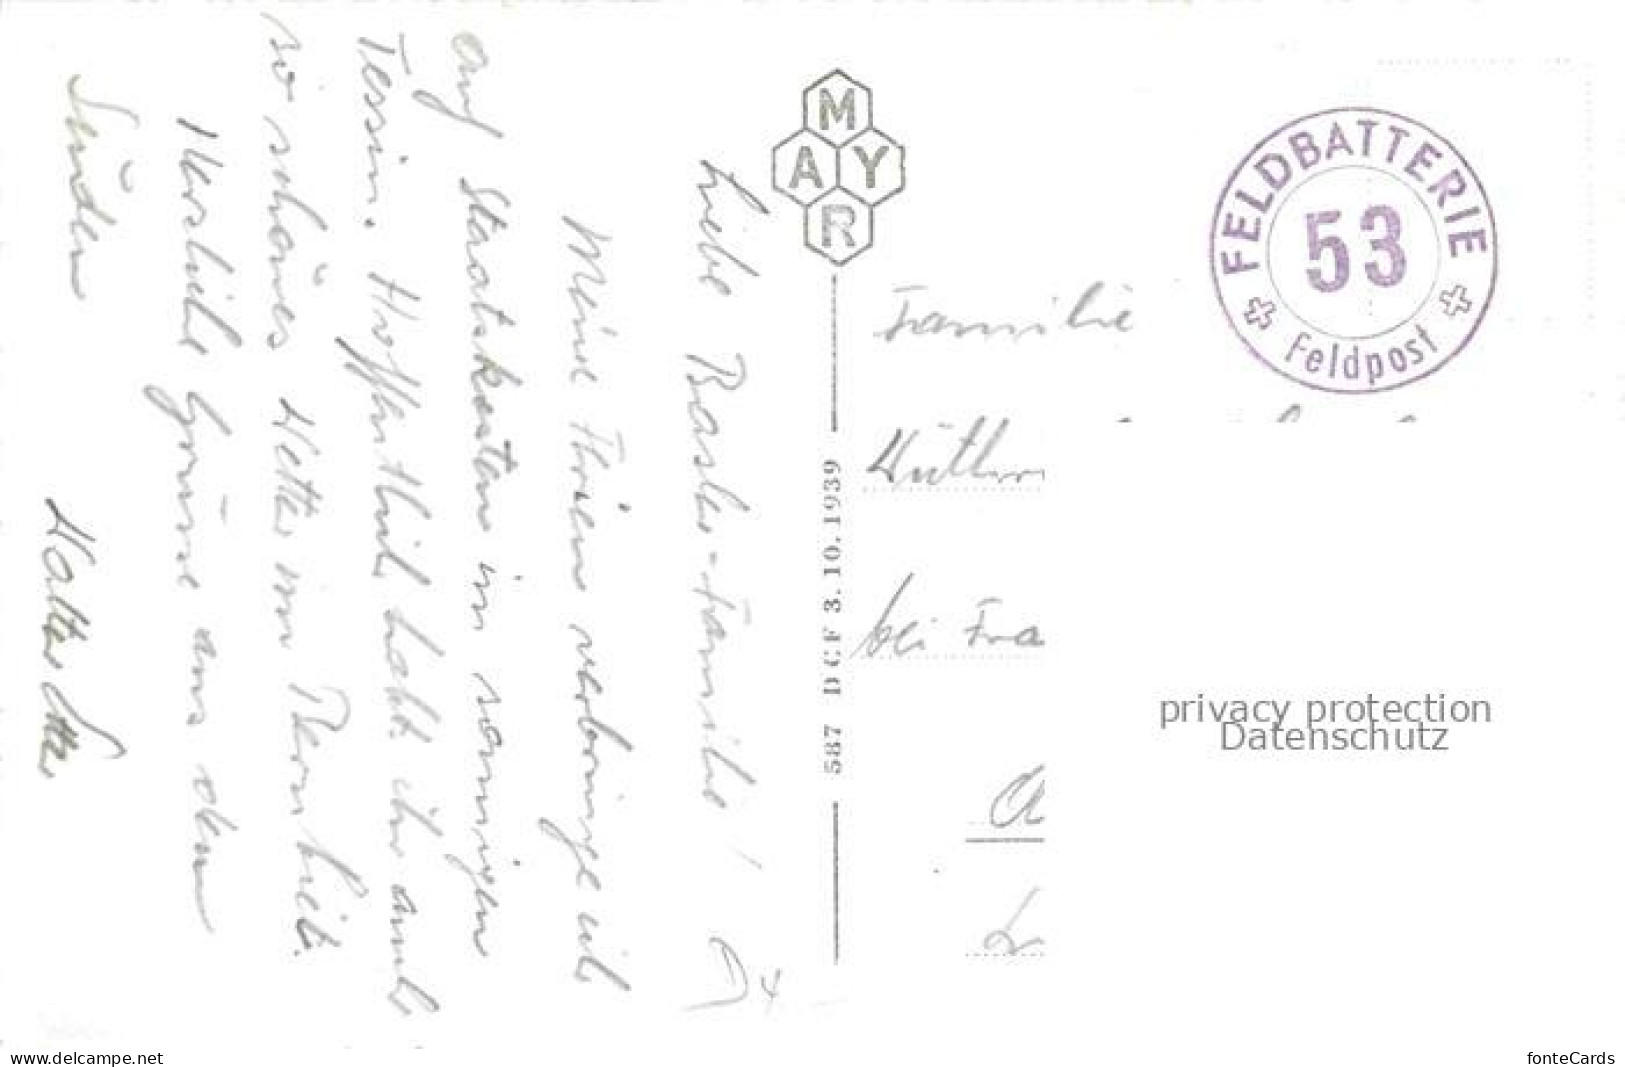 Liebe Basler-Familie!
Meine Ferien verbringe ich
auf Staatskosten im sonnigen
Tessin. Hoffentlich habt ihr auch
so schönes Wetter im Bernbiet.
Herzliche Grüsse aus dem
Süden
Walter
MAYR
587 DCF 3.10.1939
FELDBATTERIE
53
Feldpost
Familie
bei Fra
privacy protection
Datenschutz
www.delcampe.net
fonteCards